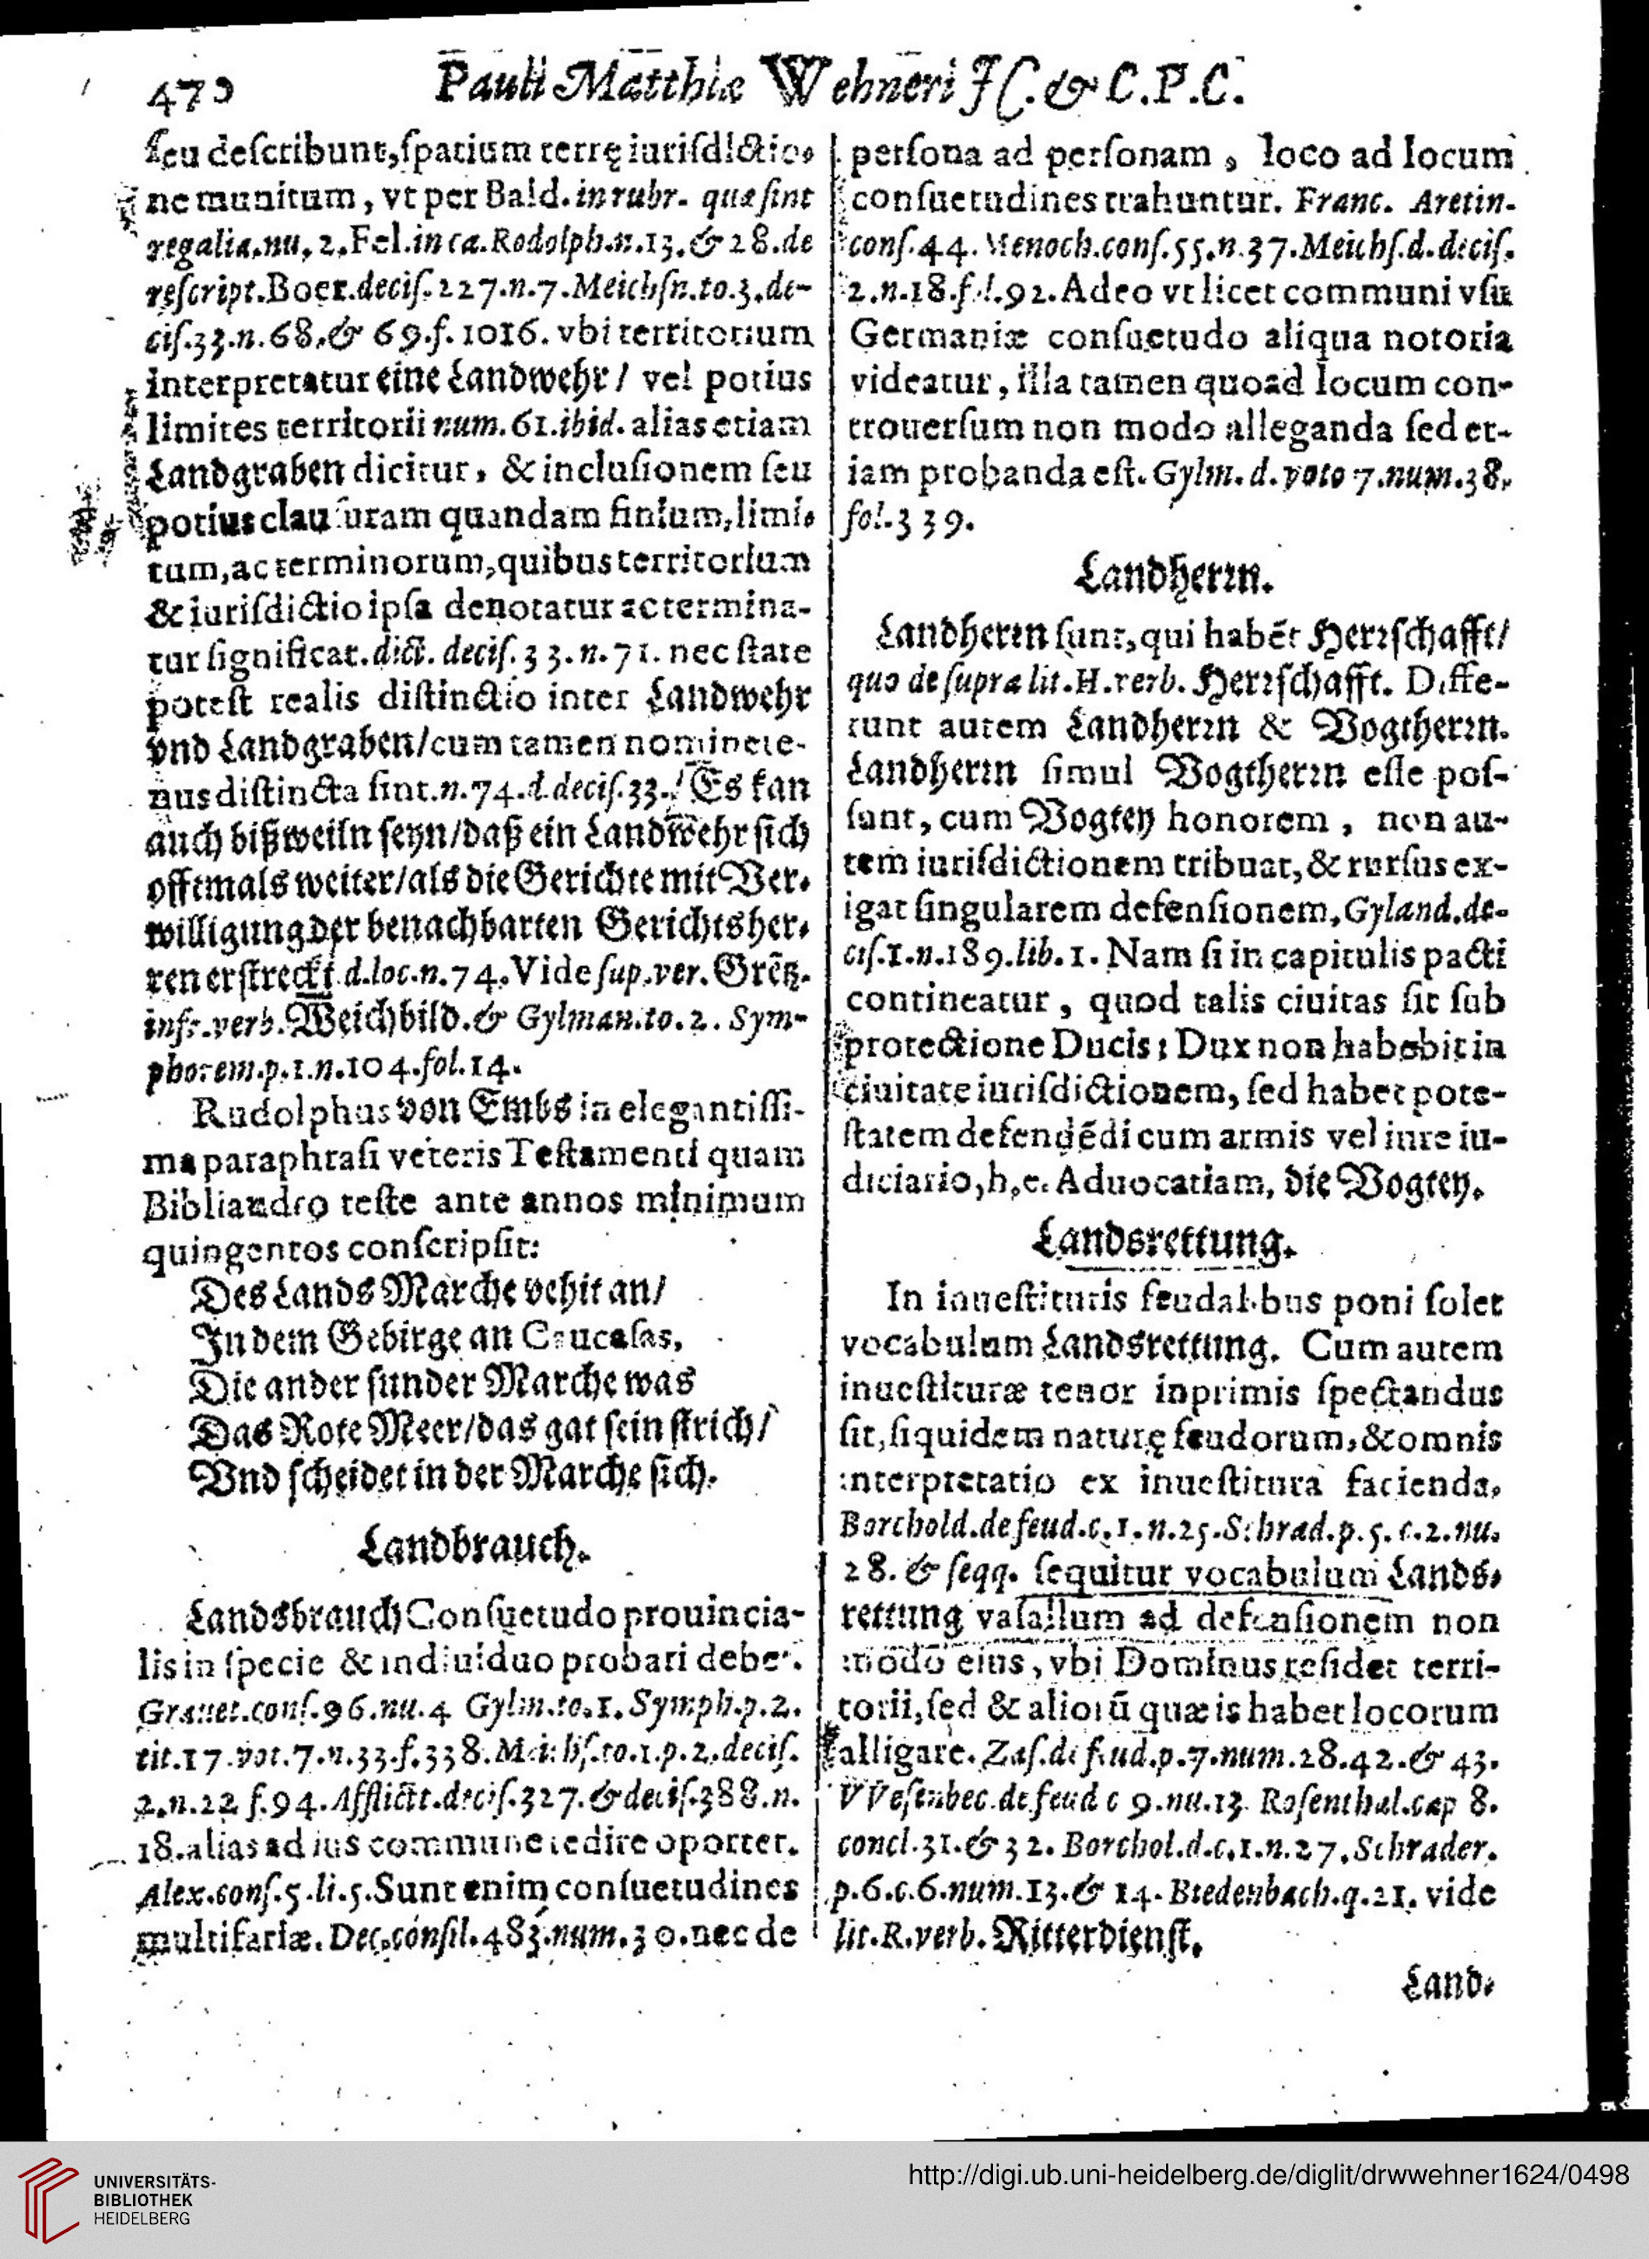 470
Pauli Matthiæ Wehneri JC. & C.P.C.
ſeu deſcribunt, ſpatium terrę iuriſdictio-
ne munitum, vt per Bald. in rubr. quæ ſint
regalia. nu. 2. Fel. in ca. Rodolph. n. 13. & 28. de
reſcript. Boer. deciſ. 227. n. 7. Meichſn. to. 3. de-
ciſ. 33. n. 68. & 69. f. 1016. vbi territorium
interpretatur eine Landwehr/ vel potius
limites territorii num. 61. ibid. alias etiam
Landgraben dicitur, & incluſionem ſeu
potius clauſuram quandam finium, limi-
tum, ac terminorum, quibus territorium
& iuriſdictio ipſa denotatur ac termina-
tur ſignificat. dict. deciſ. 33. n. 71. nec ſtare
poteſt realis diſtinctio inter Landwehr
vnd Landgraben/ cum tamen nomine te-
nus diſtincta ſint. n. 74. d. deciſ. 33. / Es kan
auch bißweiln ſeyn/ daß ein Landwehr ſich
offtmals weiter/ als die Gerichte mit Ver-
willigung der benachbarten Gerichtsher-
ren erſtreckt. d. loc. n. 74. Vide ſup. ver. Grẽtz.
infr. verb. Weichbild. & Gylman. to. 2. Sym-
phorem. p. 1. n. 104. fol. 14.
Rudolphus von Embs in elegantiſſi-
ma paraphraſi veteris Teſtamenti quam
Bibliandro teſte ante annos minimum
quingentos conſcripſit:
Des Lands Marche vehit an/
In dem Gebirge an Caucaſas,
Die ander ſunder Marche was
Das Rote Meer/ das gat ſein ſtrich/
Vnd ſcheidet in der Marche ſich.
Landbrauch.
Landsbrauch Conſuetudo prouincia-
lis in ſpecie & indiuiduo probari debet.
Grauet. conſ. 96. nu. 4 Gylm. to. 1. Symph. p. 2.
tit. 17. vot. 7. n. 33. f. 338. Meichſ. to. 1. p. 2. deciſ.
2. n. 22 f. 94. Afflict. deciſ. 327. & deciſ. 388. n.
18. alias ad ius commune redire oportet.
Alex. conſ. 5. li. 5. Sunt enim conſuetudines
multifariæ. Dec. conſil. 483. num. 30. nec de
perſona ad perſonam, loco ad locum
conſuetudines trahuntur. Franc. Aretin.
conſ. 44. Menoch. conſ. 55. n. 37. Meichſ. d. deciſ.
2. n. 18. fol. 92. Adeo vt licet communi vſu
Germaniæ conſuetudo aliqua notoria
videatur, illa tamen quoad locum con-
trouerſum non modo alleganda ſed et-
iam probanda eſt. Gylm. d. voto 7. num. 38.
fol. 339.
Landherꝛn.
Landherꝛn ſunt, qui habẽt Herꝛſchafft/
quo de ſupra lit. H. verb. Herꝛſchafft. Diffe-
runt autem Landherꝛn & Vogtherꝛn.
Landherꝛn ſimul Vogtherꝛn eſſe poſ-
ſunt, cum Vogtey honorem, non au-
tem iuriſdictionem tribuat, & rurſus ex-
igat ſingularem defenſionem, Gyland. de-
ciſ. 1. n. 189. lib. 1. Nam ſi in capitulis pacti
contineatur, quod talis ciuitas ſit ſub
protectione Ducis: Dux non habebit in
ciuitate iuriſdictionem, ſed habet pote-
ſtatem defendẽdi cum armis vel iure iu-
diciario, h. e. Aduocatiam, die Vogtey.
Landsrettung.
In inueſtituris feudalibus poni ſolet
vocabulum Landsrettung. Cum autem
inueſtituræ tenor inprimis ſpectandus
ſit, ſiquidem naturę feudorum, & omnis
interpretatio ex inueſtitura facienda,
Borchold. de feud. c. 1. n. 25. Schrad. p. 5. c. 2. nu.
28. & ſeqq. ſequitur vocabulum Lands-
rettung vaſallum ad defenſionem non
modo eius, vbi Dominus reſidet terri-
torii, ſed & aliorũ quæ is habet locorum
alligare. Zaſ. de feud. p. 7. num. 28. 42. & 43.
VVeſenbec. de feud c 9. nu. 13. Roſenthal. cap 8.
concl. 31. & 32. Borchol. d. c. 1. n. 27. Schrader.
p. 6. c. 6. num. 13. & 14. Bredenbach. q. 21. vide
lit. R. verb. Ritterdienſt.
Land-
UNIVERSITÄTS-
BIBLIOTHEK
HEIDELBERG
http://digi.ub.uni-heidelberg.de/diglit/drwwehner1624/0498